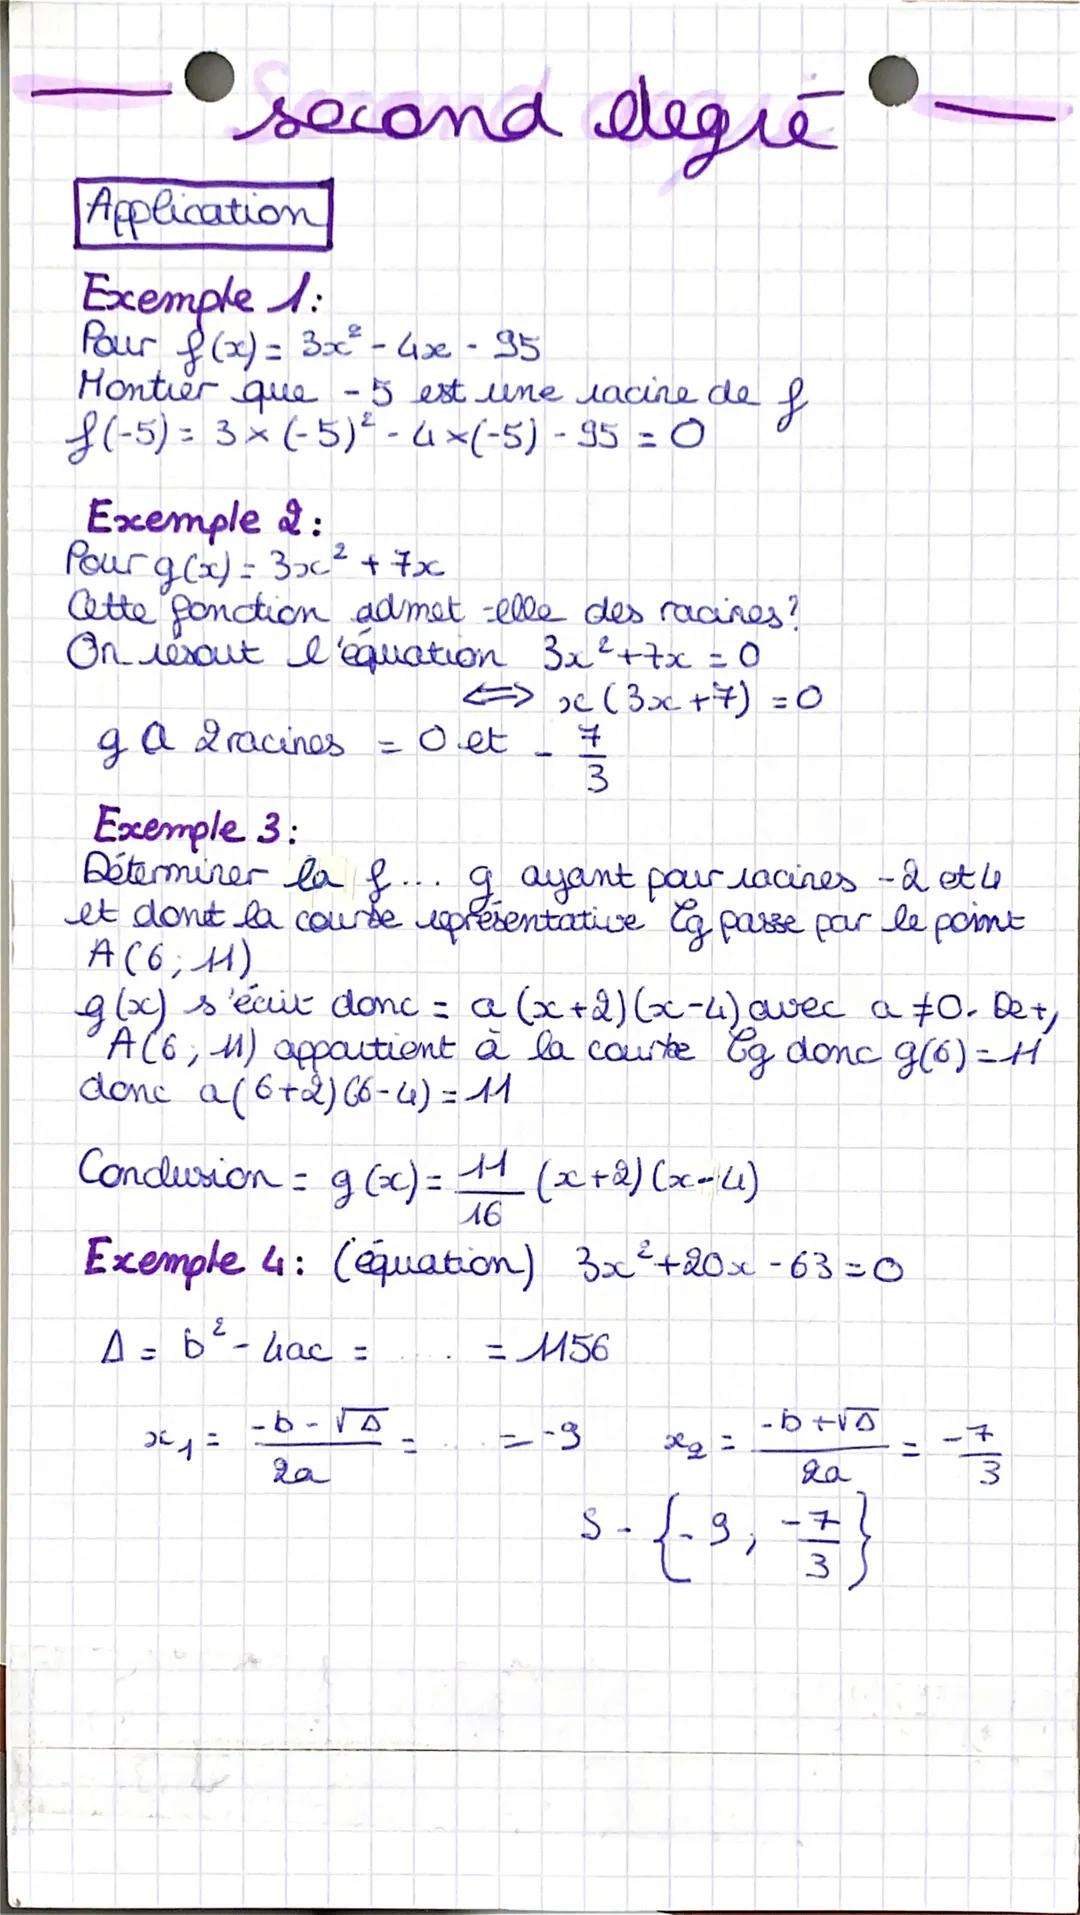 second degré
Application
Exemple 1:
Pour f(x) = 3x² - 4x - 95
Montrer que - 5 est une racine de f
f(-5) = 3 × (-5)² - 4 ×(-5) - 95 = 0
Exemple 2:
Pour g(x) = 3x² + 7x
Cette fonction admet-elle des racines?
On résout l'équation 3x²+7x = 0
⟺ x (3x +7) = 0
g a 2 racines = 0 et - 7/3
Exemple 3:
Déterminer la f... g ayant pour racines -2 et 4
et dont la courbe représentative Cg passe par le point
A(6; 11)
g(x) s'écrit donc = a (x+2)(x-4) avec a ≠0. De +,
A(6; 11) appartient à la courbe Cg donc g(6) = 11
donc a(6+2)(6-4) = 11
Conclusion = g(x) = 11/16 (x+2)(x-4)
Exemple 4: (équation) 3x²+20x - 63 = 0
Δ = b² - 4ac = .... = 1156
x₁ = -b - √Δ/2a = ... = -9 x₂ = -b +√Δ/2a = -7/3
S - {- 9, -7/3}